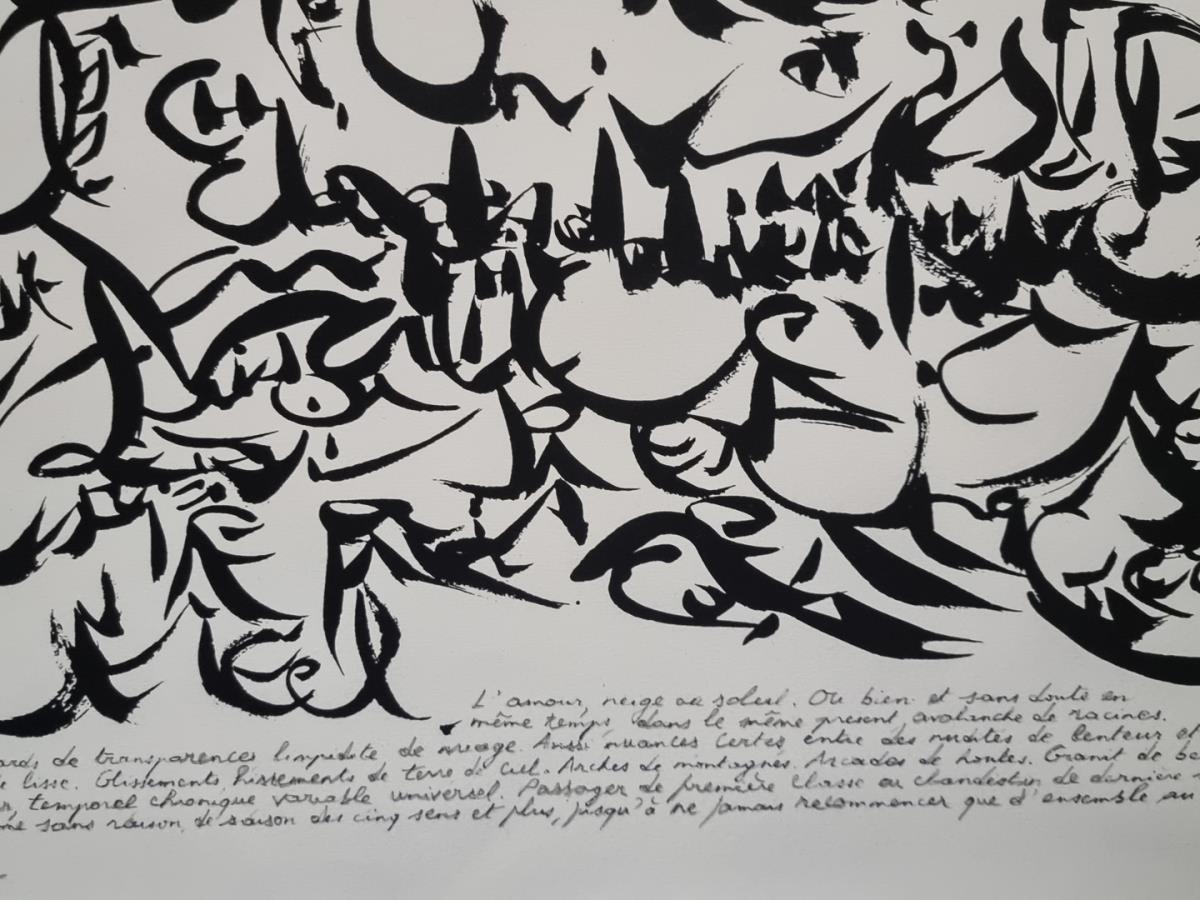 L'amour, neige au soleil. Ou bien et sans doute en
même temps, dans le même present, avalanche de racines.
ards de transparences limpidite de nuage. Aussi nuances certes entre des nudités de lenteur et
lisse. Glissements, hissements de terre de ciel. Arches de montagnes. Arcades de hontes. Granit de
temporel chronique variable universel. Passager de première classe ou clandestin de dernière
sans raison, de saison des cinq sens et plus, jusqu'à ne jamais recommencer que d'ensemble au